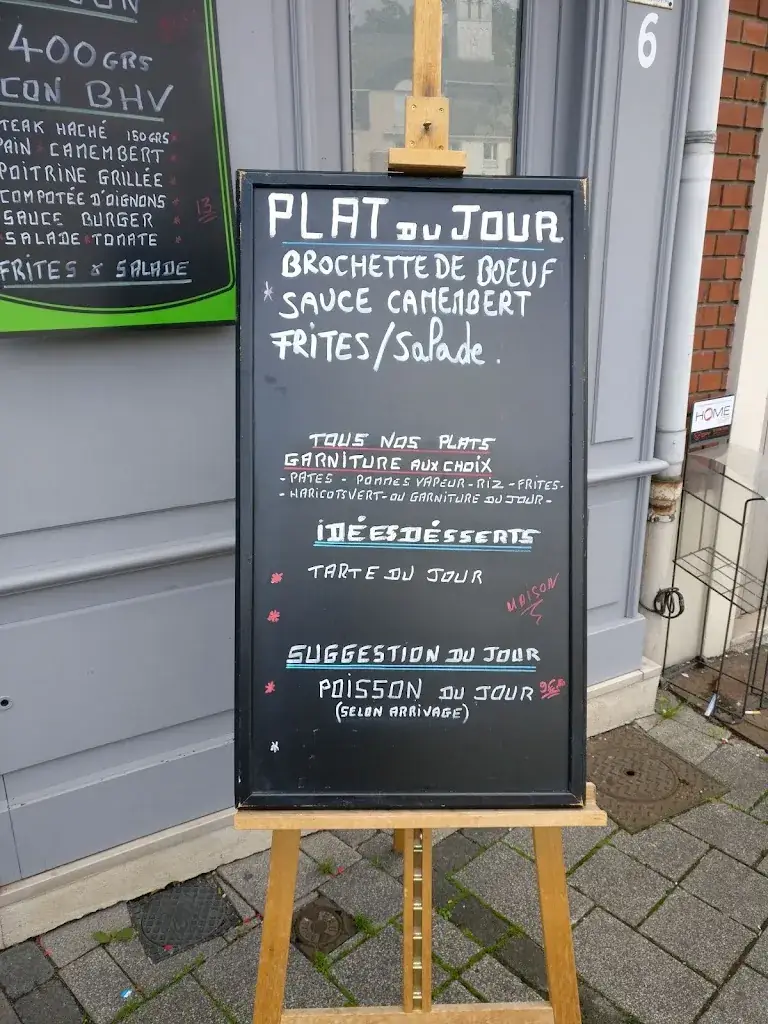 400GRS
CON BHV
TEAK HACHÉ 150GRS
PAIN CAMEMBERT
POITRINE GRILLÉE
COMPOTÉE D'OIGNONS
SAUCE BURGER
SALADE TOMATE
13
FRITES & SALADE
6
HOME
PLAT DU JOUR
BROCHETTE DE BOEUF
* SAUCE CAMEMBERT
FRITES/Salade.
TOUS NOS PLATS
GARNITURE AUX CHOIX
- PATES - POMMES VAPEUR - RIZ - FRITES -
- HARICOTS VERT - OU GARNITURE DU JOUR -
IDÉES DÉSSERTS
* TARTE DU JOUR
MAISON
*
SUGGESTION DU JOUR
* POISSON DU JOUR
(SELON ARRIVAGE)
*